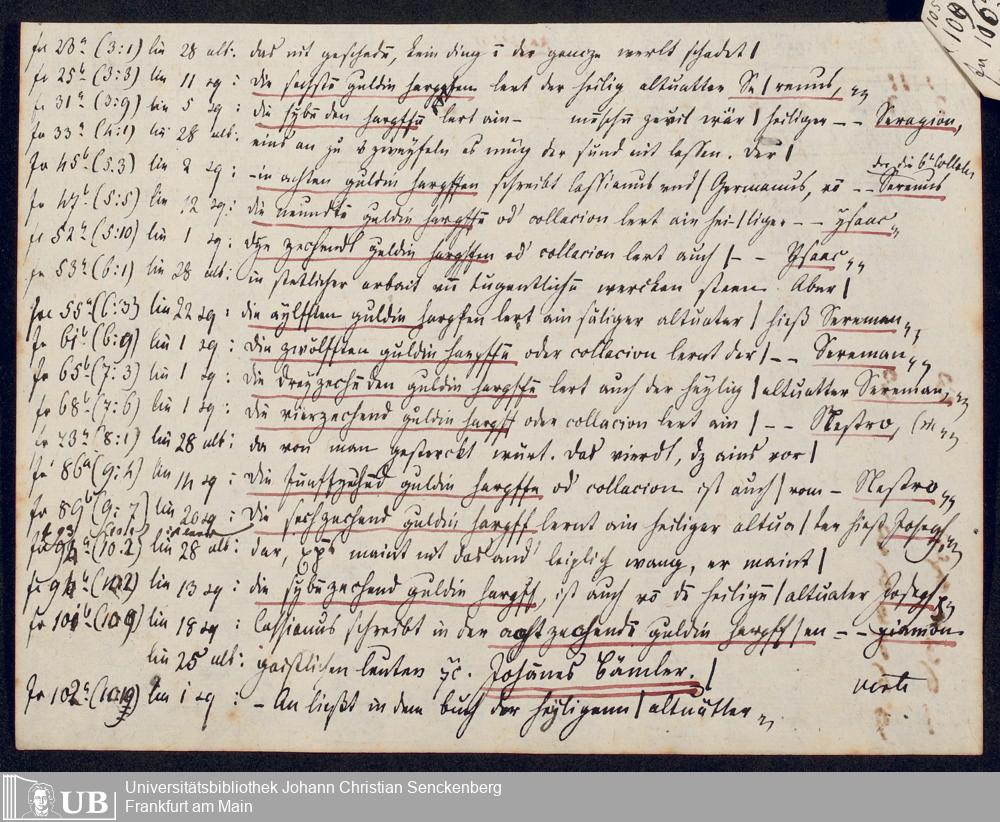 105
109
fn 106
fn 23ᵃ (3:1) lin 28 alt: das nit geschech, kein ding i der gancze werlt schadet |
fn 25ᵇ (3:3) lin 11 sq: die sechste guldin harpffen lert der heilig altuatter Se|renus,
fn 31ᵃ (3:9) lin 5 sq: die sybenden harpffe lert ain – heiliger – – Serapion,
fn 33ᵃ (4:1) lin 28 alt: menschen zevil wär |
eins an zu zweyfeln es mug der sund nit lassen. der |
fn 45ᵇ (5:3) lin 2 sq: in achten guldin harpffen schreibt Cassianus vnd | Germanus, – – Serenus
fn 47ᵇ (5:5) lin 12 sq: die neundte guldin harpffe od' collacion lert ain hei|liger – – ysaac
fn 52ᵇ (5:10) lin 1 sq: dye zechendt guldin harpffen od collacion lert auch | – – Ysaac
fn 53ᵃ (6:1) lin 28 alt: in stetlicher arbait vn tugentliche wercken steen. Aber |
fn 55ᵃ (6:3) lin 22 sq: die aylfften guldin harpfen lert ain säliger altuater | hieß Sereman
fn 61ᵇ (6:9) lin 1 sq: Die zwölfften guldin harpffe oder collacion lernt der | – – Sereman
fn 65ᵇ (7:3) lin 1 sq: Die dreyzechenden guldin harpffe lert auch der heylig | altuatter Sereman
fn 68ᵇ (7:6) lin 1 sq: Die vierzechend guldin harpff oder collacion lert ain | – – Nestro,
fn 73ᵃ (8:1) lin 28 alt: da von man gesterckt wurt. Das vierdt, dz ains vor |
fn 86ᵃ (9:4) lin 14 sq: Die funffzehed guldin harpffe od collacion ist auch | vom – Nestro
fn 89ᵇ (9:7) lin 20 sq: Die sechzechend guldin harpff lernt ain heiliger altua|ter hieß Joseph,
(10:2) lin 28 alt: dar, maint nit das and' leiplich wang, er maint |
fn 94ᵇ (10:2) lin 13 sq: die sybezechend guldin harpff, ist auch vo de heilige | altuater Joseph
fn 101ᵇ (10:9) lin 18 sq: Cassianus schreibt in der achtzechende guldin harpff|en – – piamon
lin 25 alt: geistlichen leuten ꝛc. Johanes Bämler. |
fn 102ᵃ (10:10) lin 1 sq: – An ließt in dem buch der heyligenn | altuätter
Universitätsbibliothek Johann Christian Senckenberg
Frankfurt am Main
UB